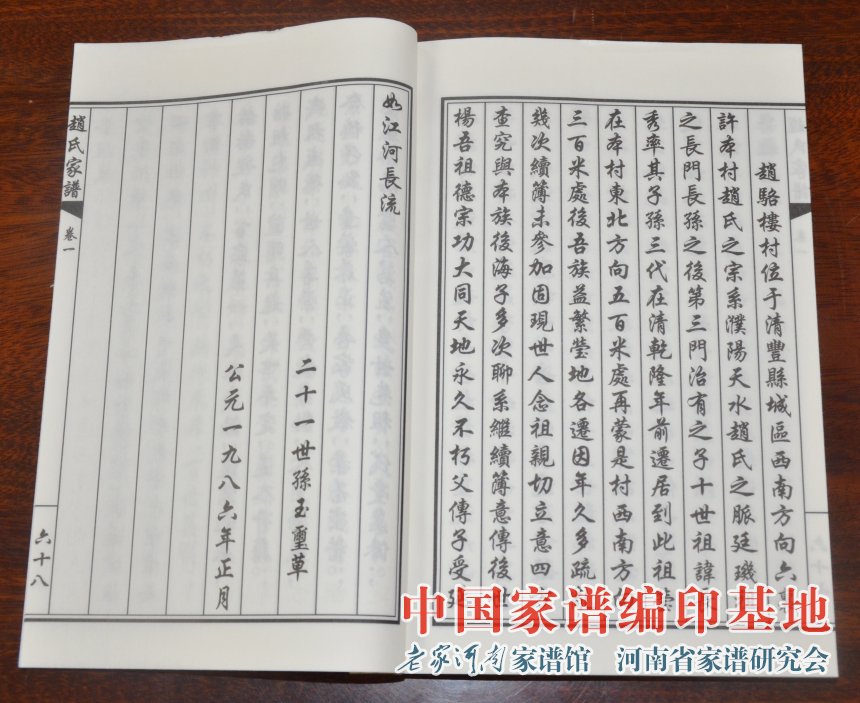 趙駱樓村位于清豐縣城區西南方向六
許本村趙氏之宗系濮陽天水趙氏之脈廷璣
之長門長孫之後第三門治有之子十世祖諱
秀率其子孫三代在清乾隆年前遷居到此祖
在本村東北方向五百米處再蒙是村西南方向
三百米處後吾族益繁瑩地各遷因年久多疏
幾次續簿未參加固現世人念祖親切立意四
查究與本族後海子多次聊系繼續簿意傳後世
楊吾祖德宗功大同天地永久不朽父傳子受
如江河長流
二十一世孫玉璽草
公元一九八六年正月
趙氏家譜
卷一
六十八
中国家谱编印基地
老家河南家谱馆 河南省家谱研究会